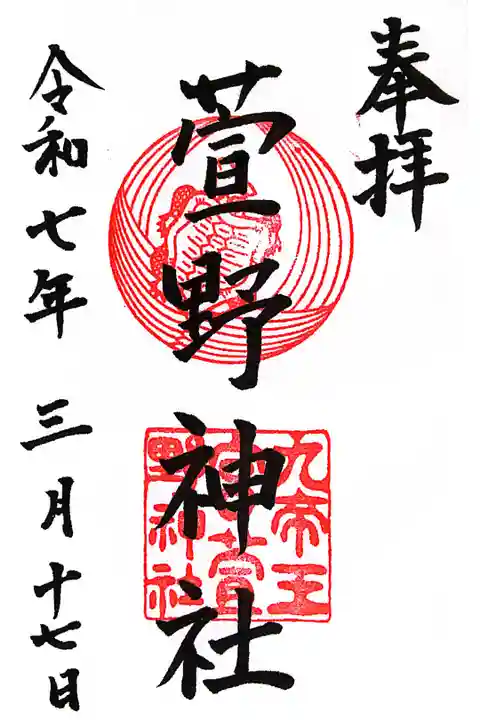 奉拝
萱野神社
九帝王
萱
野神社
令和七年 三月十七日